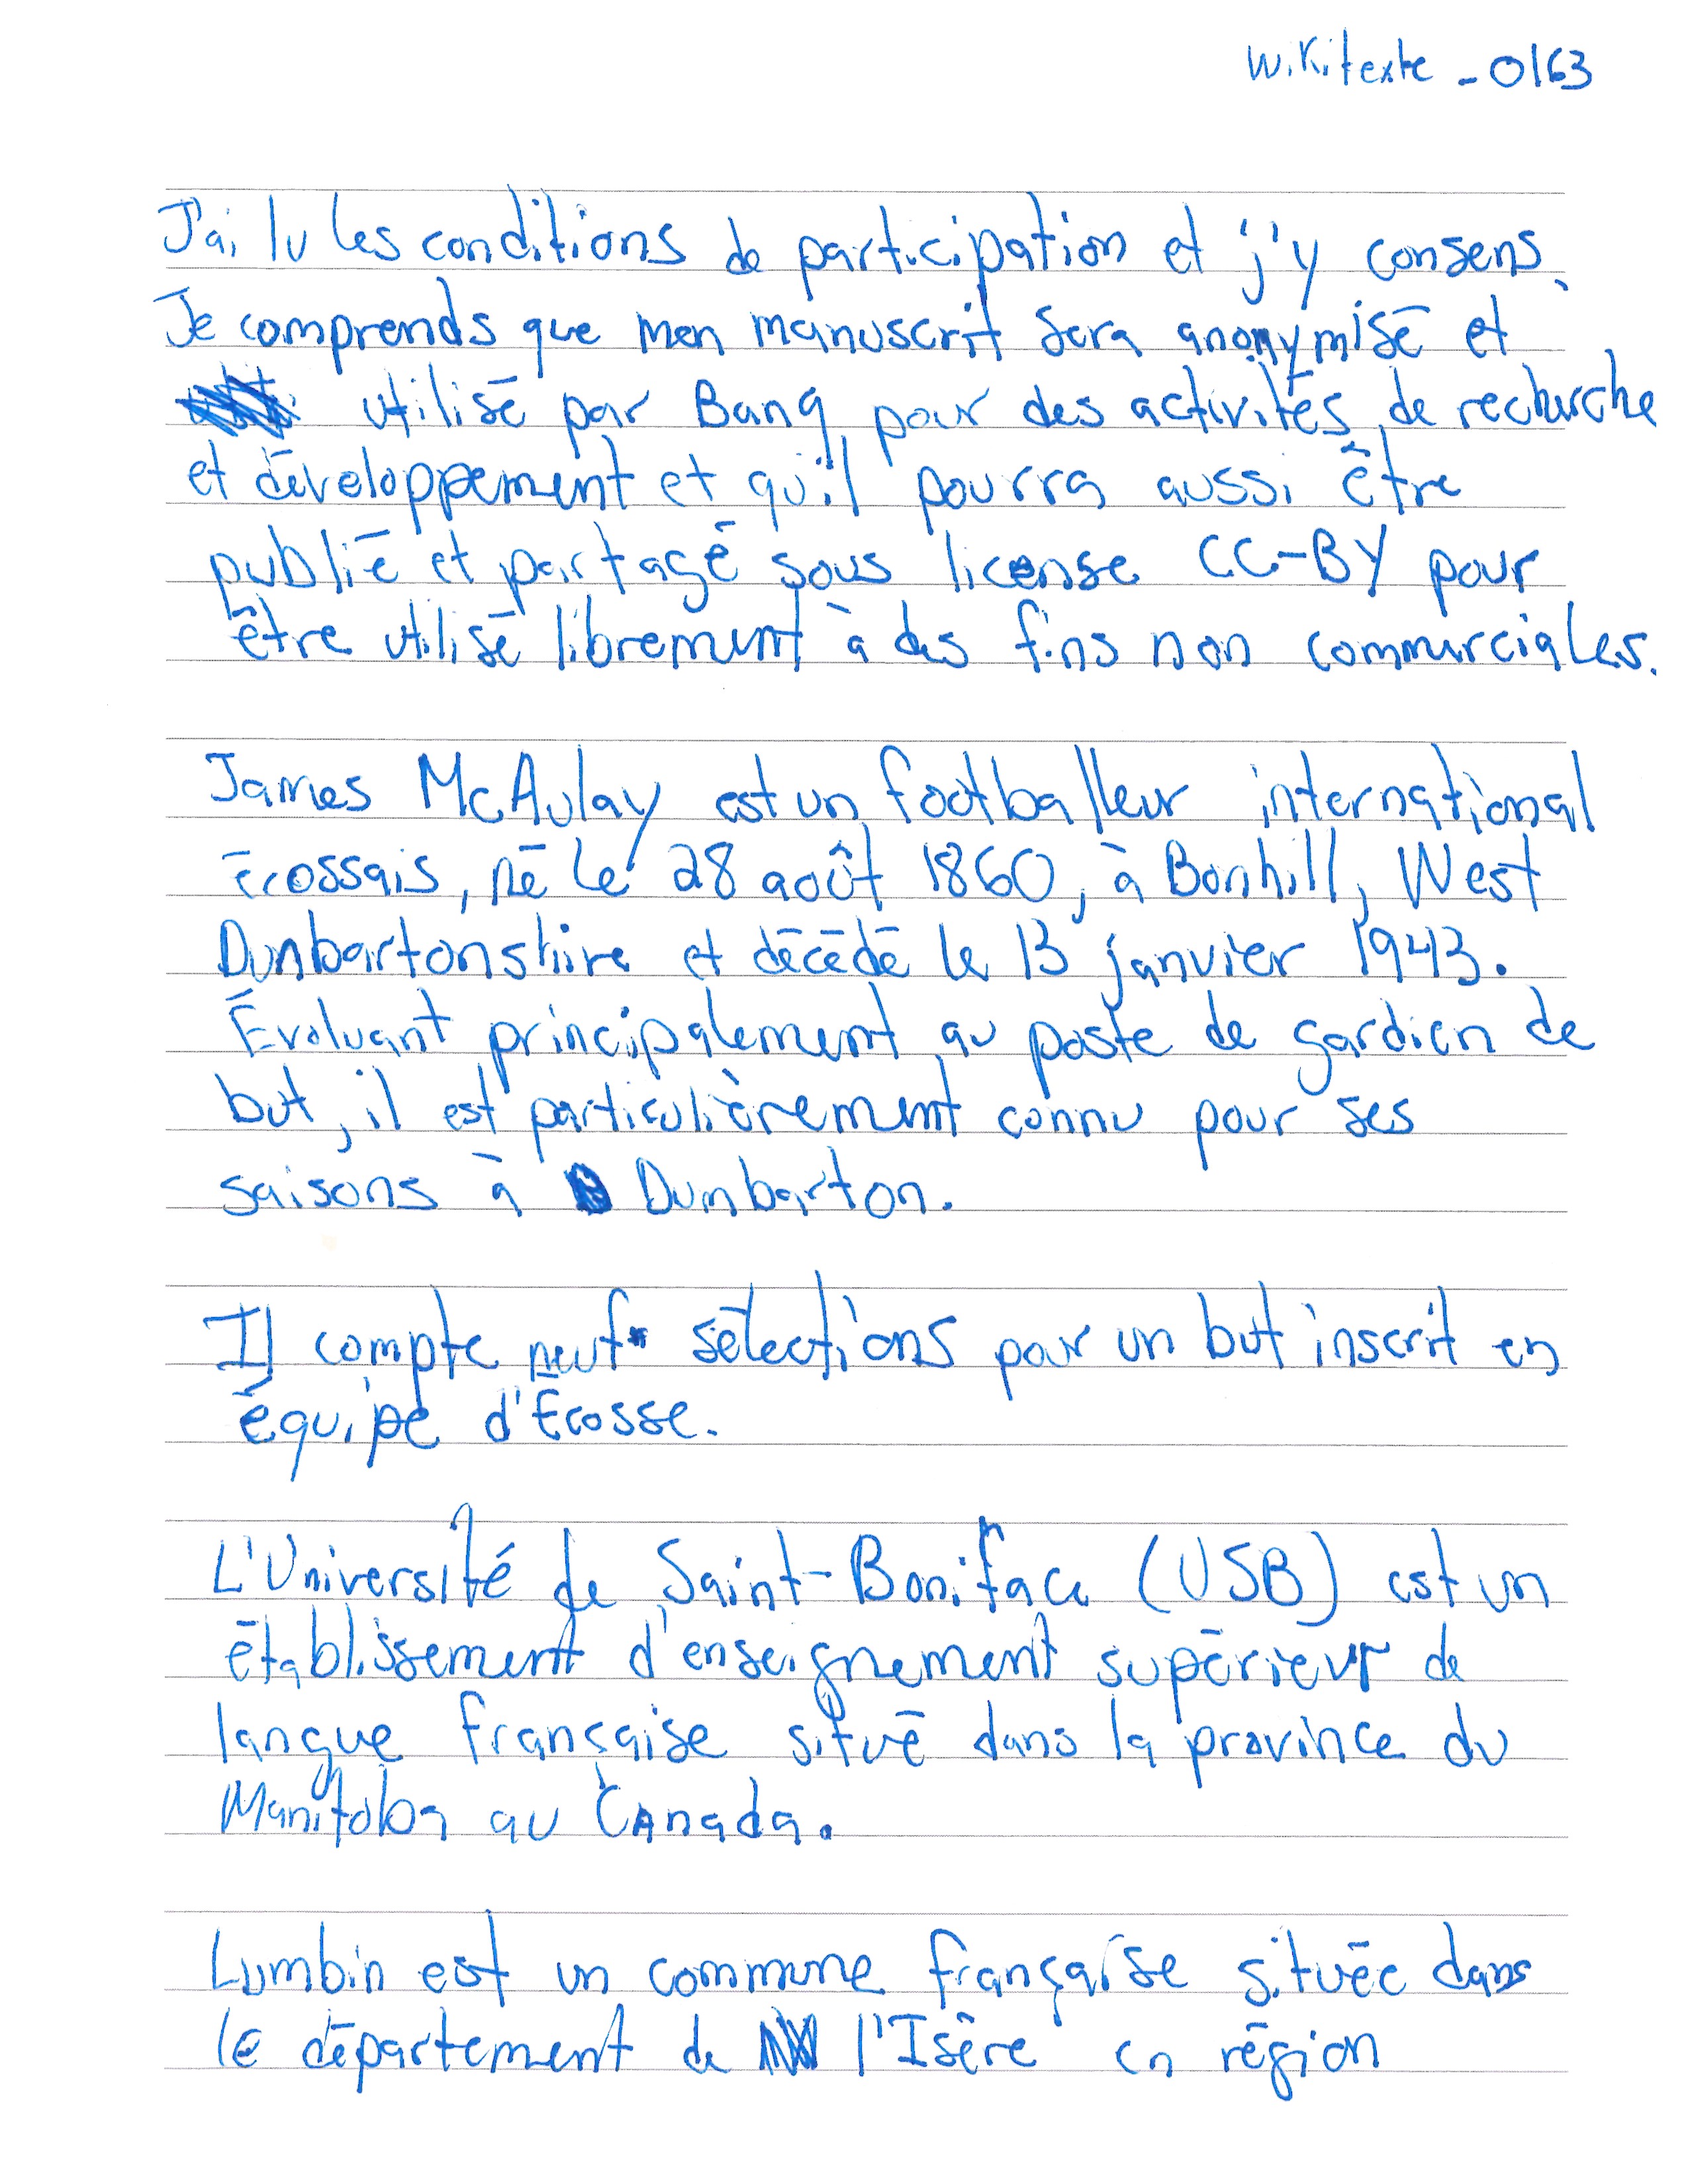 Wikitexte - 0163
J'ai lu les conditions de participation et j'y consens.
Je comprends que mon manuscrit sera anonymisé et
utilisé par Banq pour des activités de recherche
et développement et qu'il pourra aussi être
publié et partagé sous license CC-BY pour
être utilisé librement à des fins non commerciales.
James McAulay est un footballeur international
écossais, né le 28 août 1860, à Bonhill, West
Dunbartonshire et décédé le 13 janvier 1943.
Évoluant principalement au poste de gardien de
but, il est particulièrement connu pour ses
saisons à Dumbarton.
Il compte neuf sélections pour un but inscrit en
équipe d'Écosse.
L'Université de Saint-Boniface (USB) est un
établissement d'enseignement supérieur de
langue française situé dans la province du
Manitoba au Canada.
Lumbin est un commune française située dans
le département de l'Isère en région